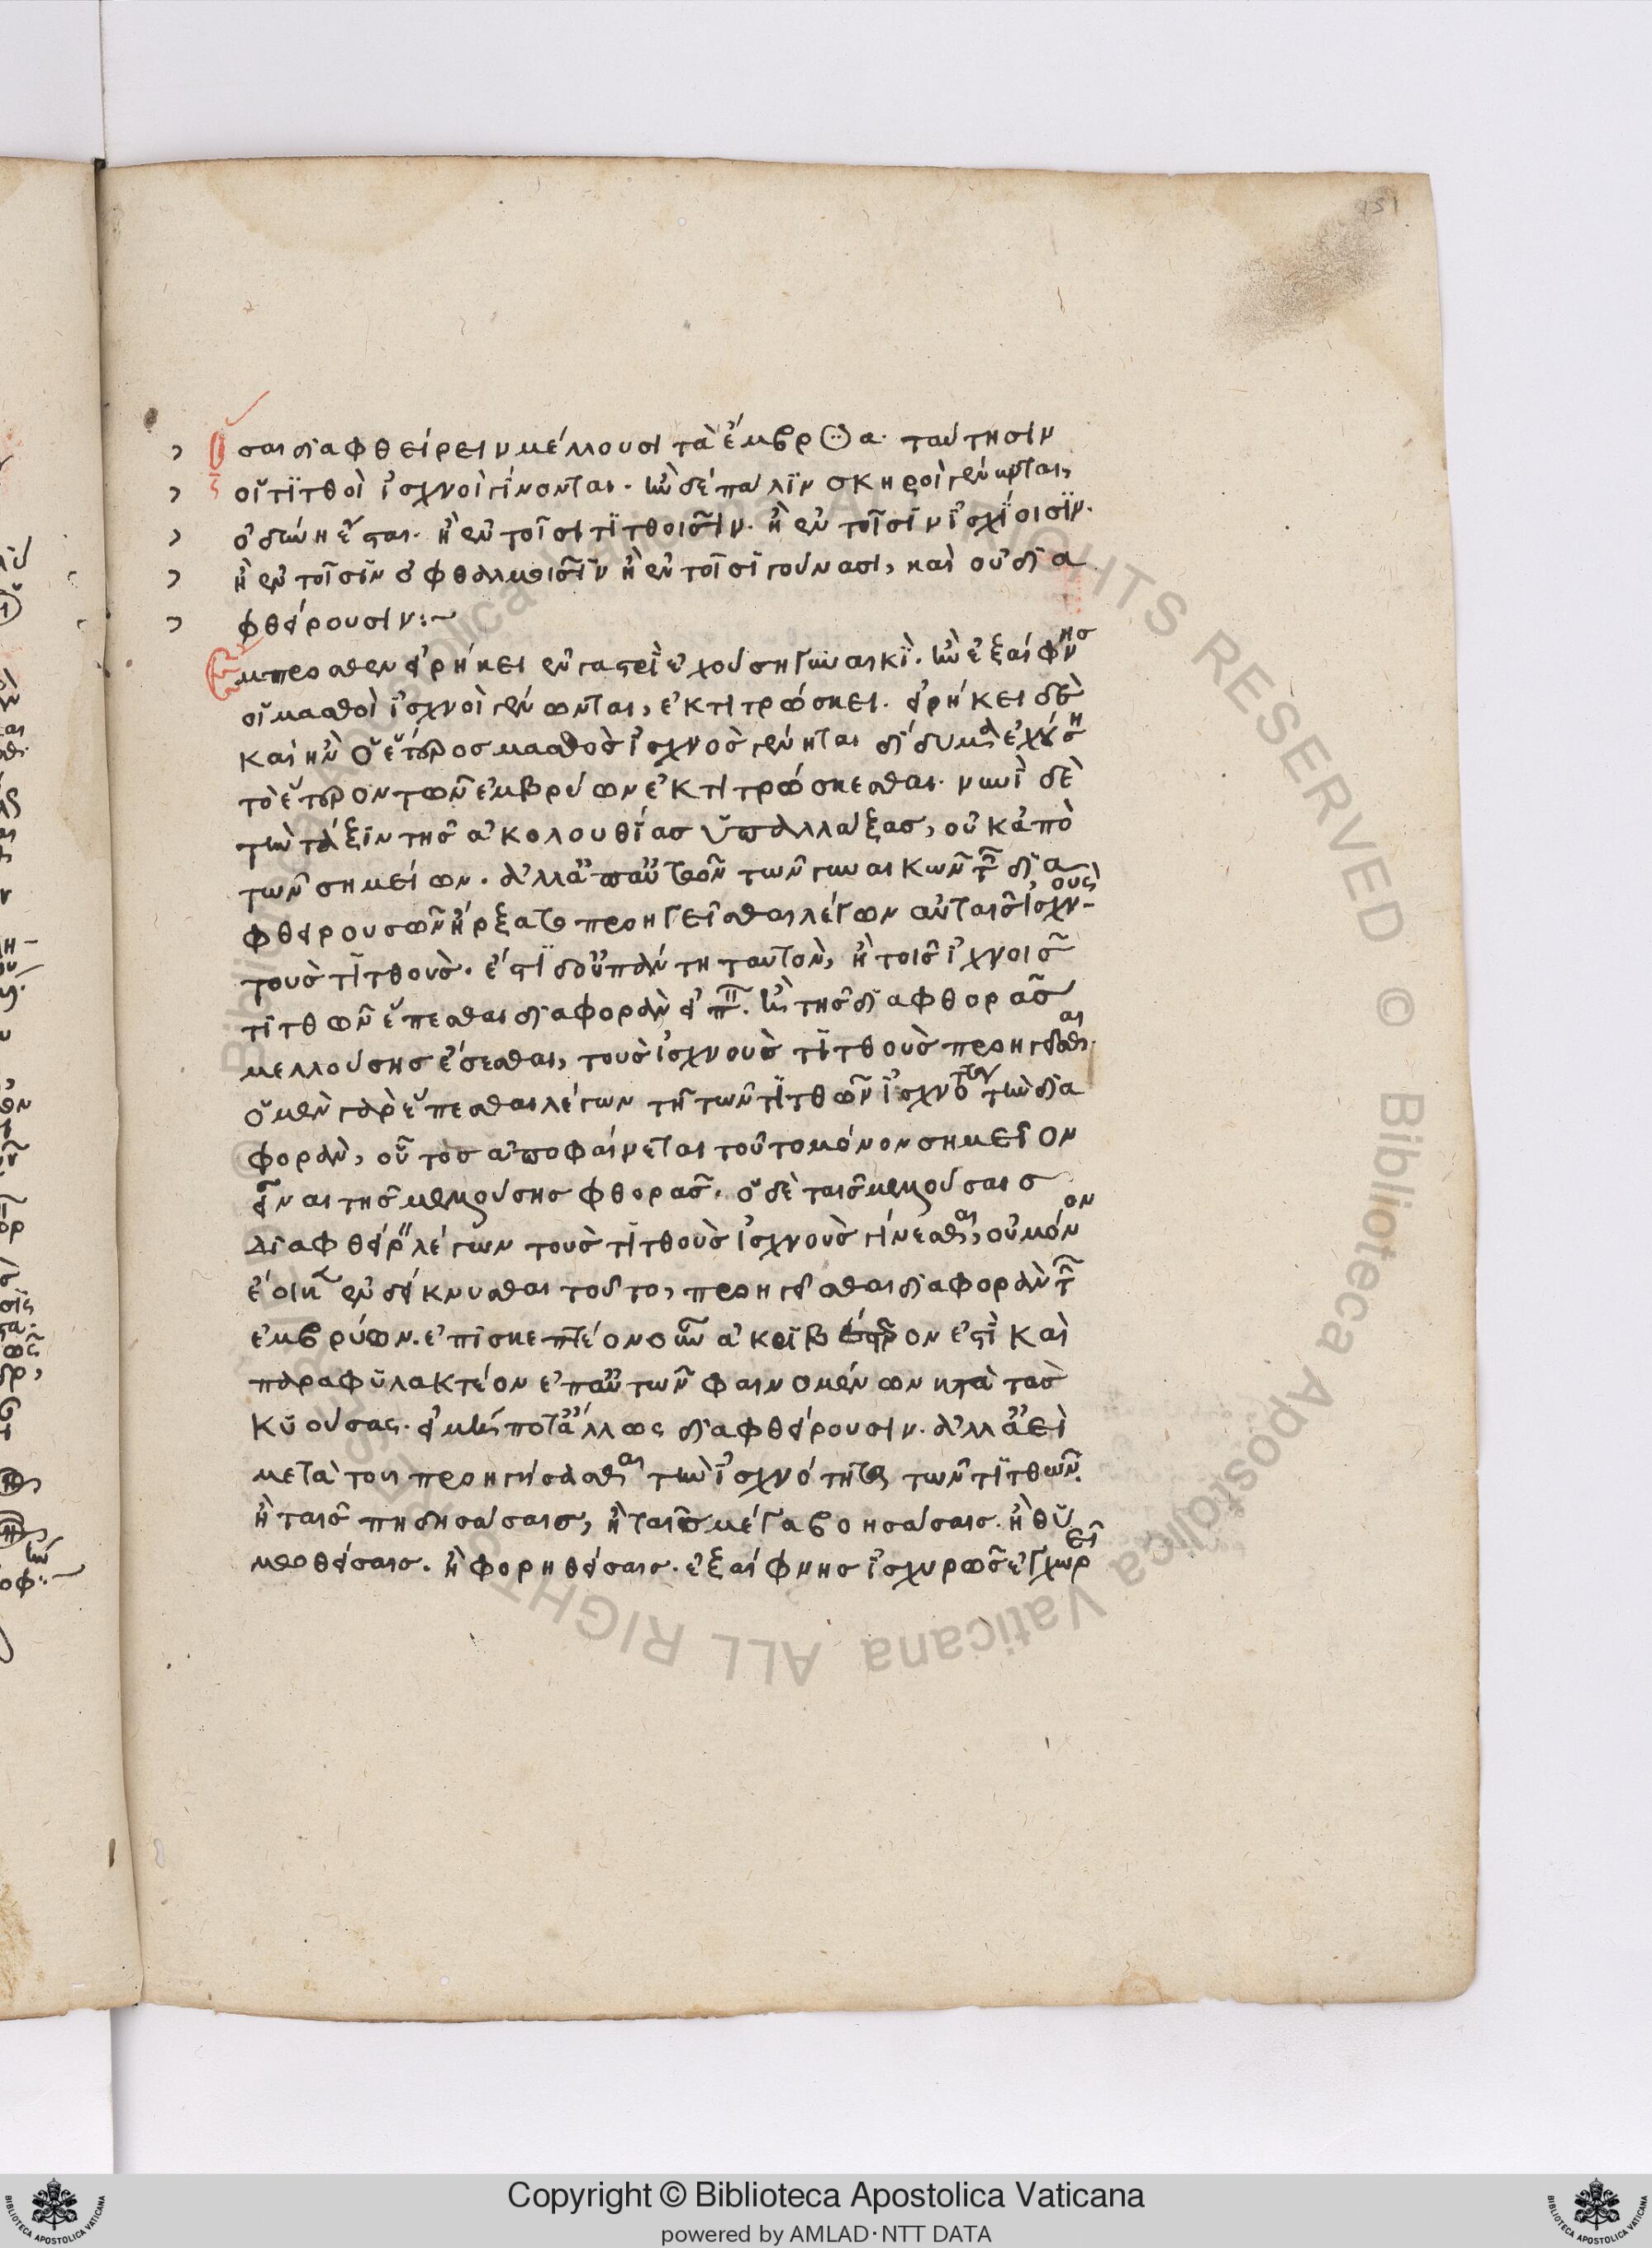 151
Ὅσαι διαφθείρειν μέλλουσι τὰ ἔμβρυα. ταύτησιν
οἱ τιτθοὶ ἰσχνοὶ γίνονται. ἢν δὲ πάλιν σκληροὶ γένωνται,
ὀδύνη ἔσται. ἢ ἐν τοῖσι τιτθοῖσιν. ἢ ἐν τοῖσιν ἰσχίοισιν.
ἢ ἐν τοῖσιν ὀφθαλμοῖσιν ἢ ἐν τοῖσι γούνασι, καὶ οὐ δια
φθείρουσιν:~
Ἔμπροσθεν εἰρήκει ἐν γαστρὶ ἐχούση γυναικὶ. ἢν ἐξαίφνης
οἱ μασθοὶ ἰσχνοὶ γένωνται, ἐκτιτρώσκει. εἰρήκει δὲ
καὶ ἢν ὁ ἕτερος μασθὸς ἰσχνὸς γένηται δίδυμα ἐχούση
τὸ ἕτερον τῶν ἐμβρύων ἐκτιτρώσκεσθαι. νυνὶ δὲ
τὴν τάξιν τῆς ἀκολουθίας ὑπαλλάξας, οὐκ ἀπὸ
τῶν σημείων. ἀλλ' ἀπ' αὐτῶν τῶν γυναικῶν τῶν δια
φθειρουσῶν ἤρξατο προηγεῖσθαι λέγων αὐταῖς ἰσχνοὺς
τοὺς τιτθούς. ἔστι δ' οὐ πάντη ταυτὸν, ἢ τοῖς ἰχνοῖς
τιτθῶν ἕπεσθαι διαφορὰν εἰπεῖν. ἢ τῆς διαφθορᾶς
μελλούσης ἔσεσθαι, τοὺς ἰσχνοὺς τιτθοὺς προηγεῖσθαι.
ὁ μὲν γὰρ ἕπεσθαι λέγων τῆ τῶν τιτθῶν ἰσχνότητι τὴν δια
φορὰν, οὗτος ἀποφαίνεται τοῦτο μόνον σημεῖον
εἶναι τῆς μελλούσης φθορᾶς. ὁ δὲ ταῖς μελλούσαις
διαφθείρειν λέγων τοὺς τιτθοὺς ἰσχνοὺς γίνεσθαι, οὐ μόνον
ἔοικεν ἐνδείκνυσθαι τοῦτο, προηγεῖσθαι διαφορὰν τῶν
ἐμβρύων. ἐπισκεπτέον οὖν ἀκριβέστερον ἐστὶ καὶ
παραφυλακτέον ἐπ' αὐτῶν φαινομένων κατὰ τὰς
κυούσας. εἰ μήποτ' ἄλλως διαφθείρουσιν. ἀλλ' ἀεὶ
μετὰ τοῦ προηγήσασθαι τὴν ἰσχνότητα τῶν τιτθῶν.
ἢ ταῖς πηδησάσαις, ἢ ταῖς μέγα βοησάσαις. ἢ θυ
μωθείσαις. ἢ φορηθείσαις. ἐξαίφνης ἰσχυρῶς ἐγχωρεῖ
Copyright © Biblioteca Apostolica Vaticana
powered by AMLAD·NTT DATA